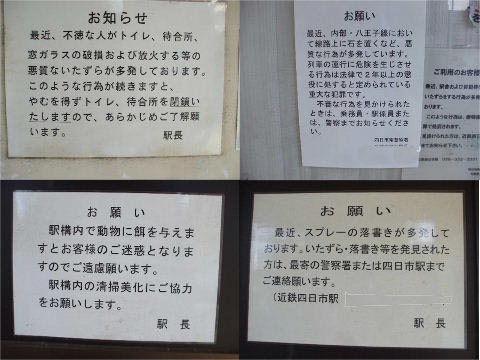 お知らせ
最近、不徳な人がトイレ、待合所、
窓ガラスの破損および放火する等の
悪質ないたずらが多発しております。
このような行為が続きますと、
やむを得ずトイレ、待合所を閉鎖い
たしますので、あらかじめご了解願
います。
駅長
お願い
最近、内部・八王子線におい
て線路上に石を置くなど、悪
質な行為が多発しています。
列車の運行に危険を生じさせ
る行為は法律で2年以上の懲
役に処すると定められている
重大な犯罪です。
不審な行為を見かけられた
ときは、乗務員・駅係員また
は、警察までお知らせくださ
い。
四日市南警察署
ご利用のお客様
お願い
駅構内で動物に餌を与えま
すとお客様のご迷惑となりま
すのでご遠慮願います。
駅構内の清掃美化にご協力
をお願いします。
駅 長
お願い
最近、スプレーの落書きが多発して
おります。いたずら・落書き等を発見された
方は、最寄の警察署または四日市駅まで
ご連絡願います。
(近鉄四日市駅
駅 長